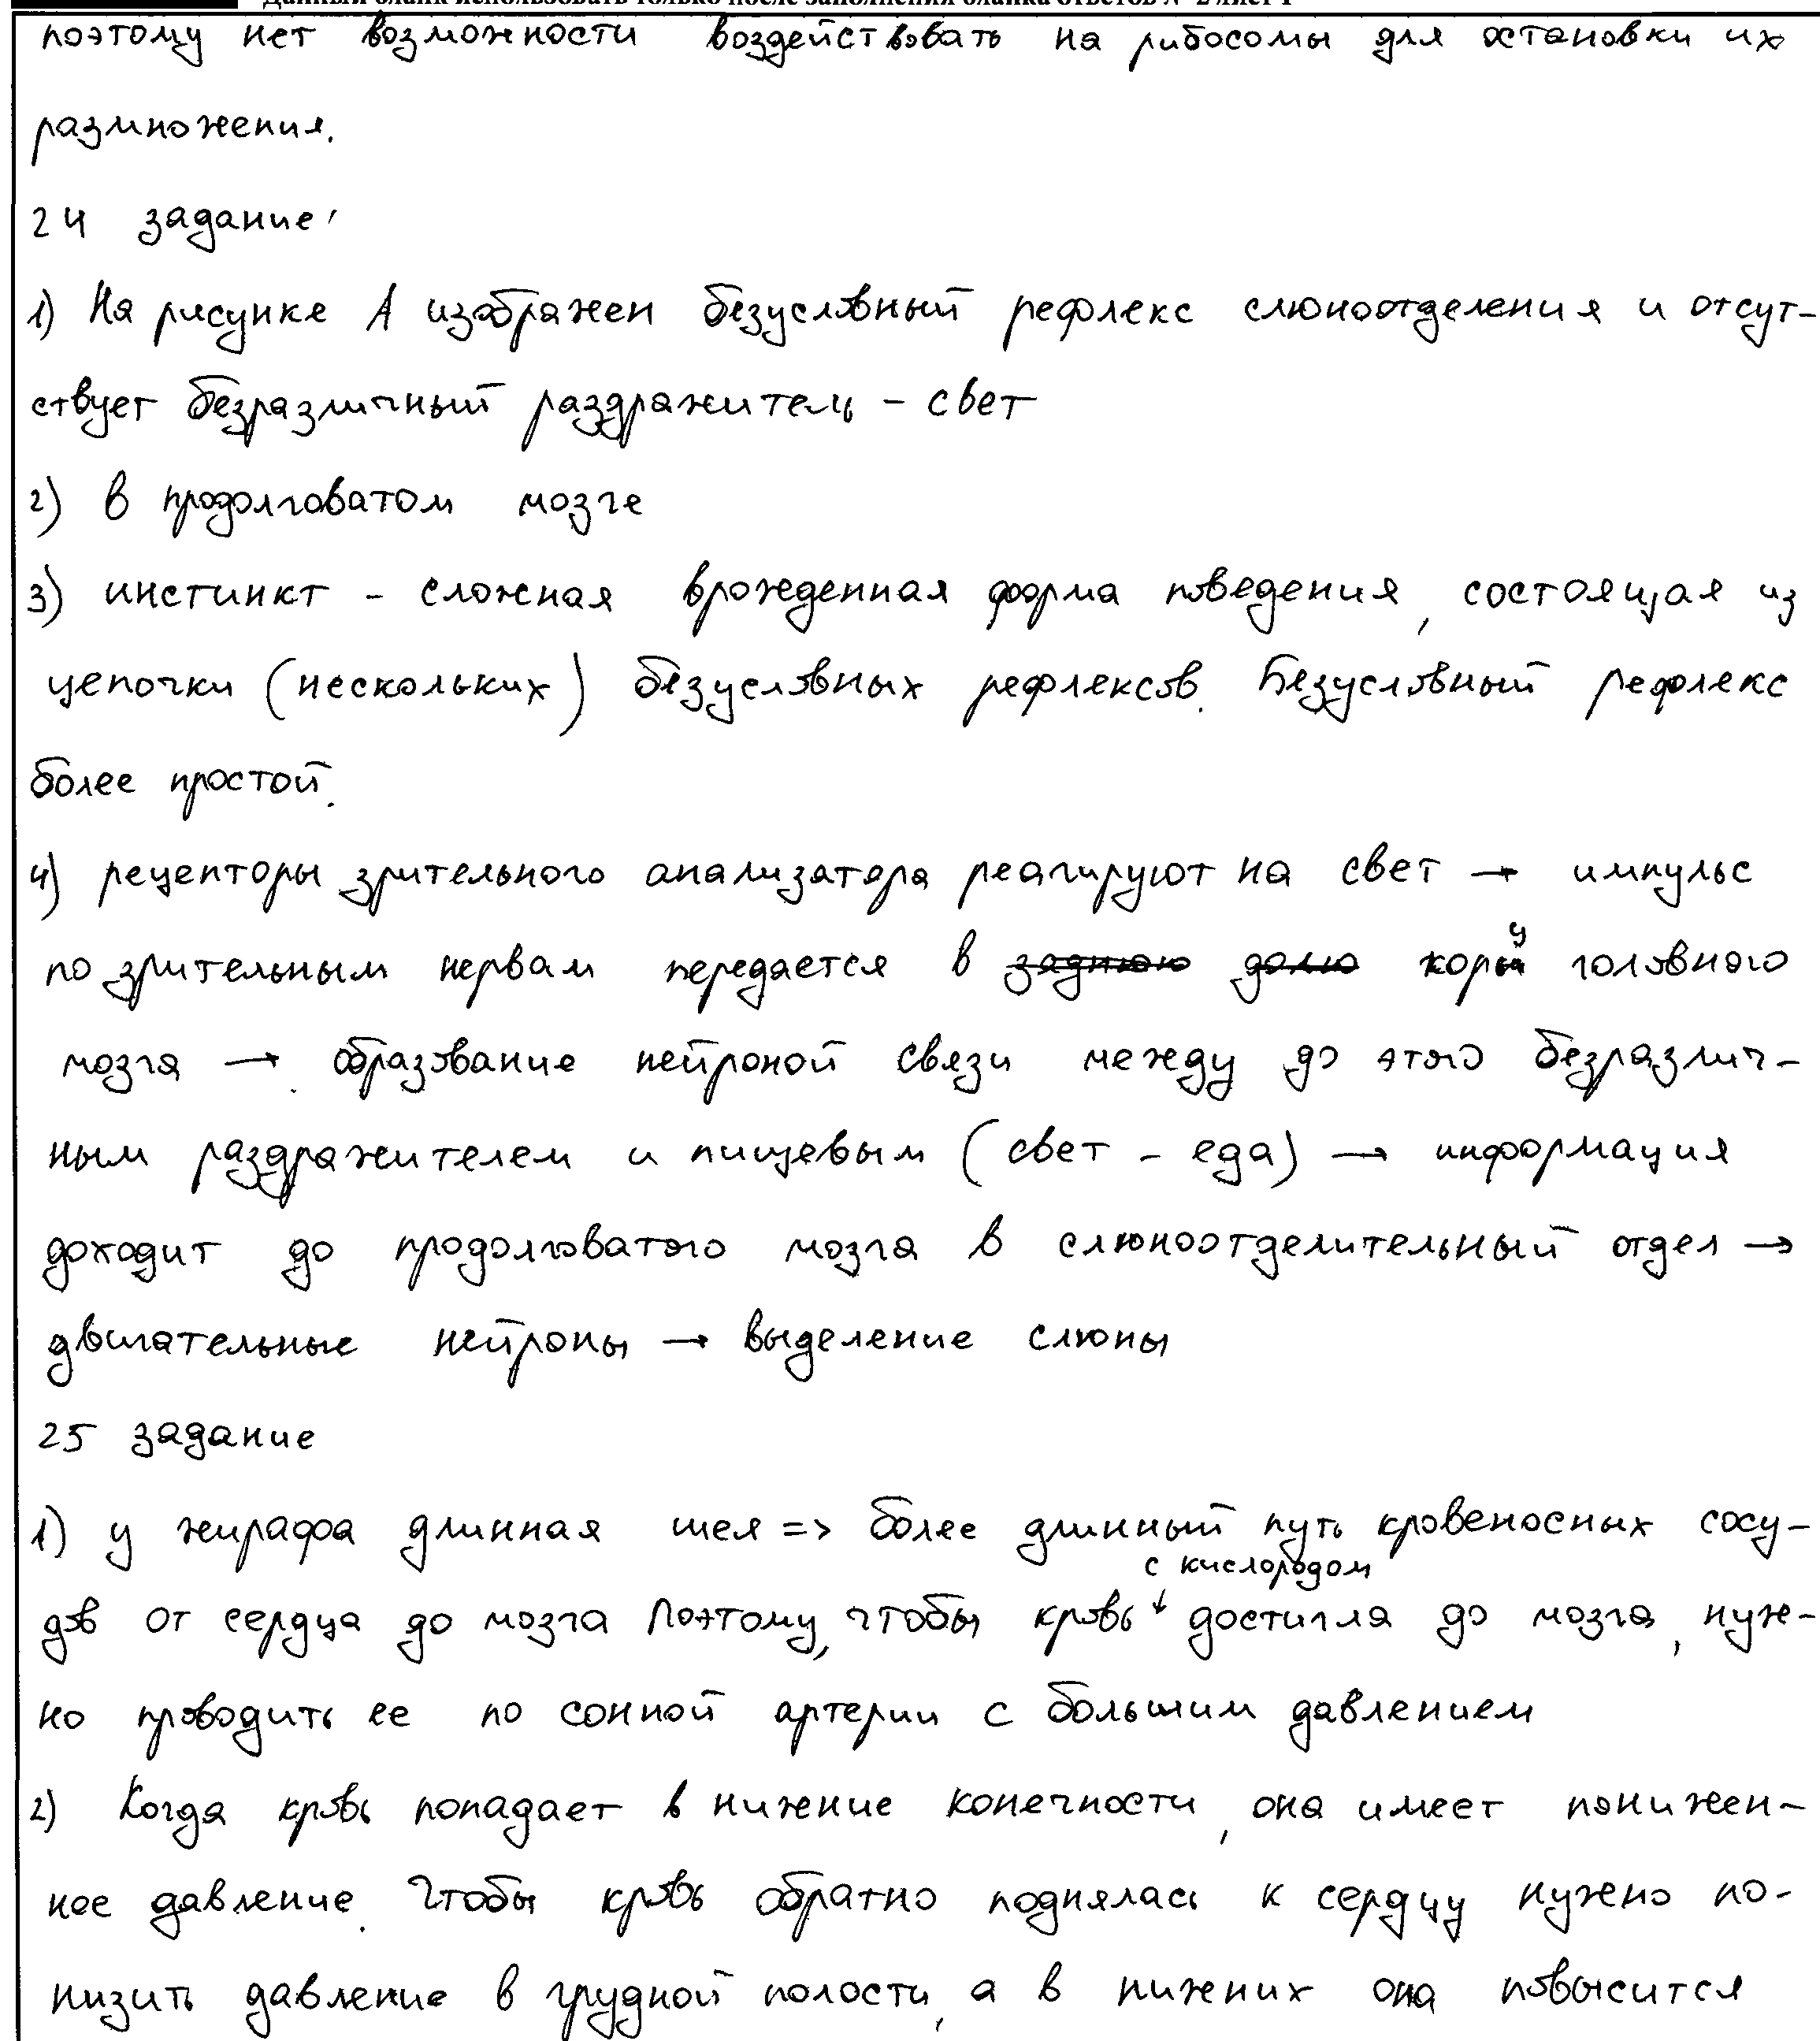 Данный бланк использовать только после заполнения бланка ответов № 2 лист 1
поэтому нет возможности воздействовать на рибосомы для остановки их
размножения.
24 задание
1) На рисунке А изображен безусловный рефлекс слюноотделения и отсут-
ствует безразличный раздражитель - свет
2) в продолговатом мозге
3) инстинкт - сложная врожденная форма поведения, состоящая из
цепочки (нескольких) безусловных рефлексов. Безусловный рефлекс
более простой.
4) рецепторы зрительного анализатора реагируют на свет → импульс
по зрительным нервам передается в заднюю долю кору головного
мозга → образование нейроной связи между до этого безразлич-
ным раздражителем и пищевым (свет - еда) → информация
доходит до продолговатого мозга в слюноотделительный отдел →
двигательные нейроны → выделение слюны
25 задание
1) у жирафа длинная шея => более длинный путь кровеносных сосу-
с кислородом
дов от сердца до мозга Поэтому, чтобы кровь ↓ достигла до мозга, нуж-
но проводить ее по сонной артерии с большим давлением
2) Когда кровь попадает в нижение конечности, она имеет понижен-
ное давление. Чтобы кровь обратно поднялась к сердцу нужно по-
низить давление в грудной полости, а в нижених она повысится